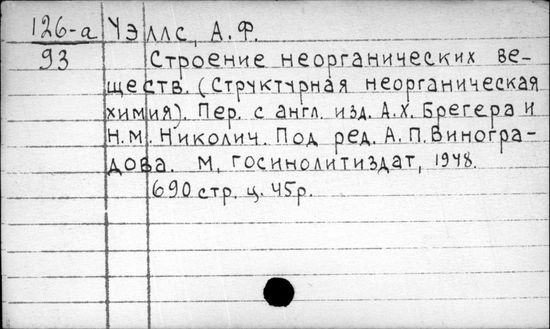 126-а Уэллс, А.Ф.
93 Строение неорганических ве-
ществ. (Структурная неорганическая
химия). Пер. с англ. изд. А.Х. Брегера и
Н.М. Николич. Под ред. А.П. Виногра-
дова. М, Госинолитиздат, 1948.
690 стр. ц. 45р.